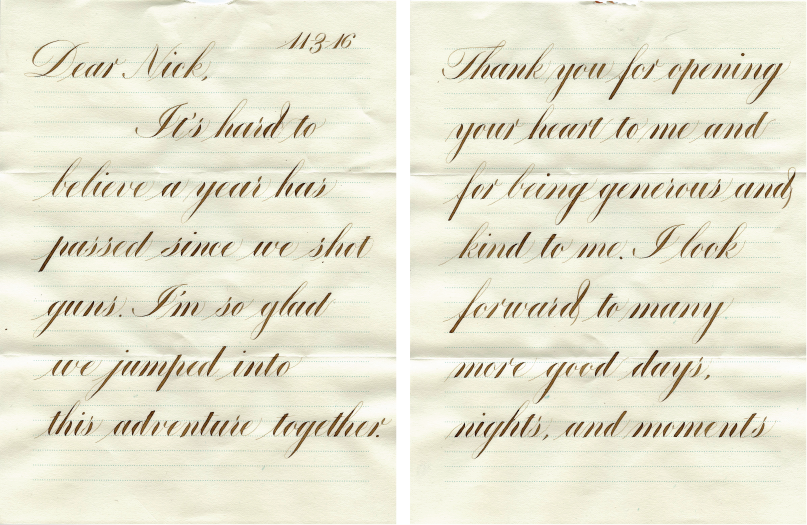 11 3 16
Dear Nick,
It's hard to
believe a year has
passed since we shot
guns. I'm so glad
we jumped into
this adventure together.
Thank you for opening
your heart to me and
for being generous and
kind to me. I look
forward to many
more good days,
nights, and moments